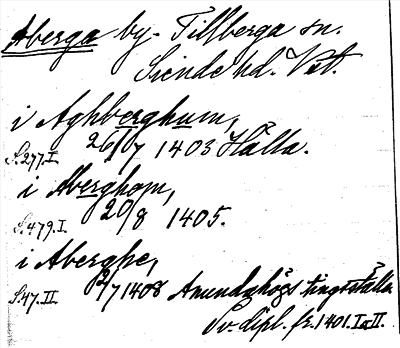 Aberga by. Tillberga sn.
Siende hd. Vstm.
i Aghberghum,
S. 277. I. 26/7 1403 Hälla.
i Aberghom,
S. 479. I. 20/8 1405.
i Aberghe,
S. 47. II. 2/7 1408 Anundahögs tingsställe
Sv. dipl. fr. 1401. I o II.